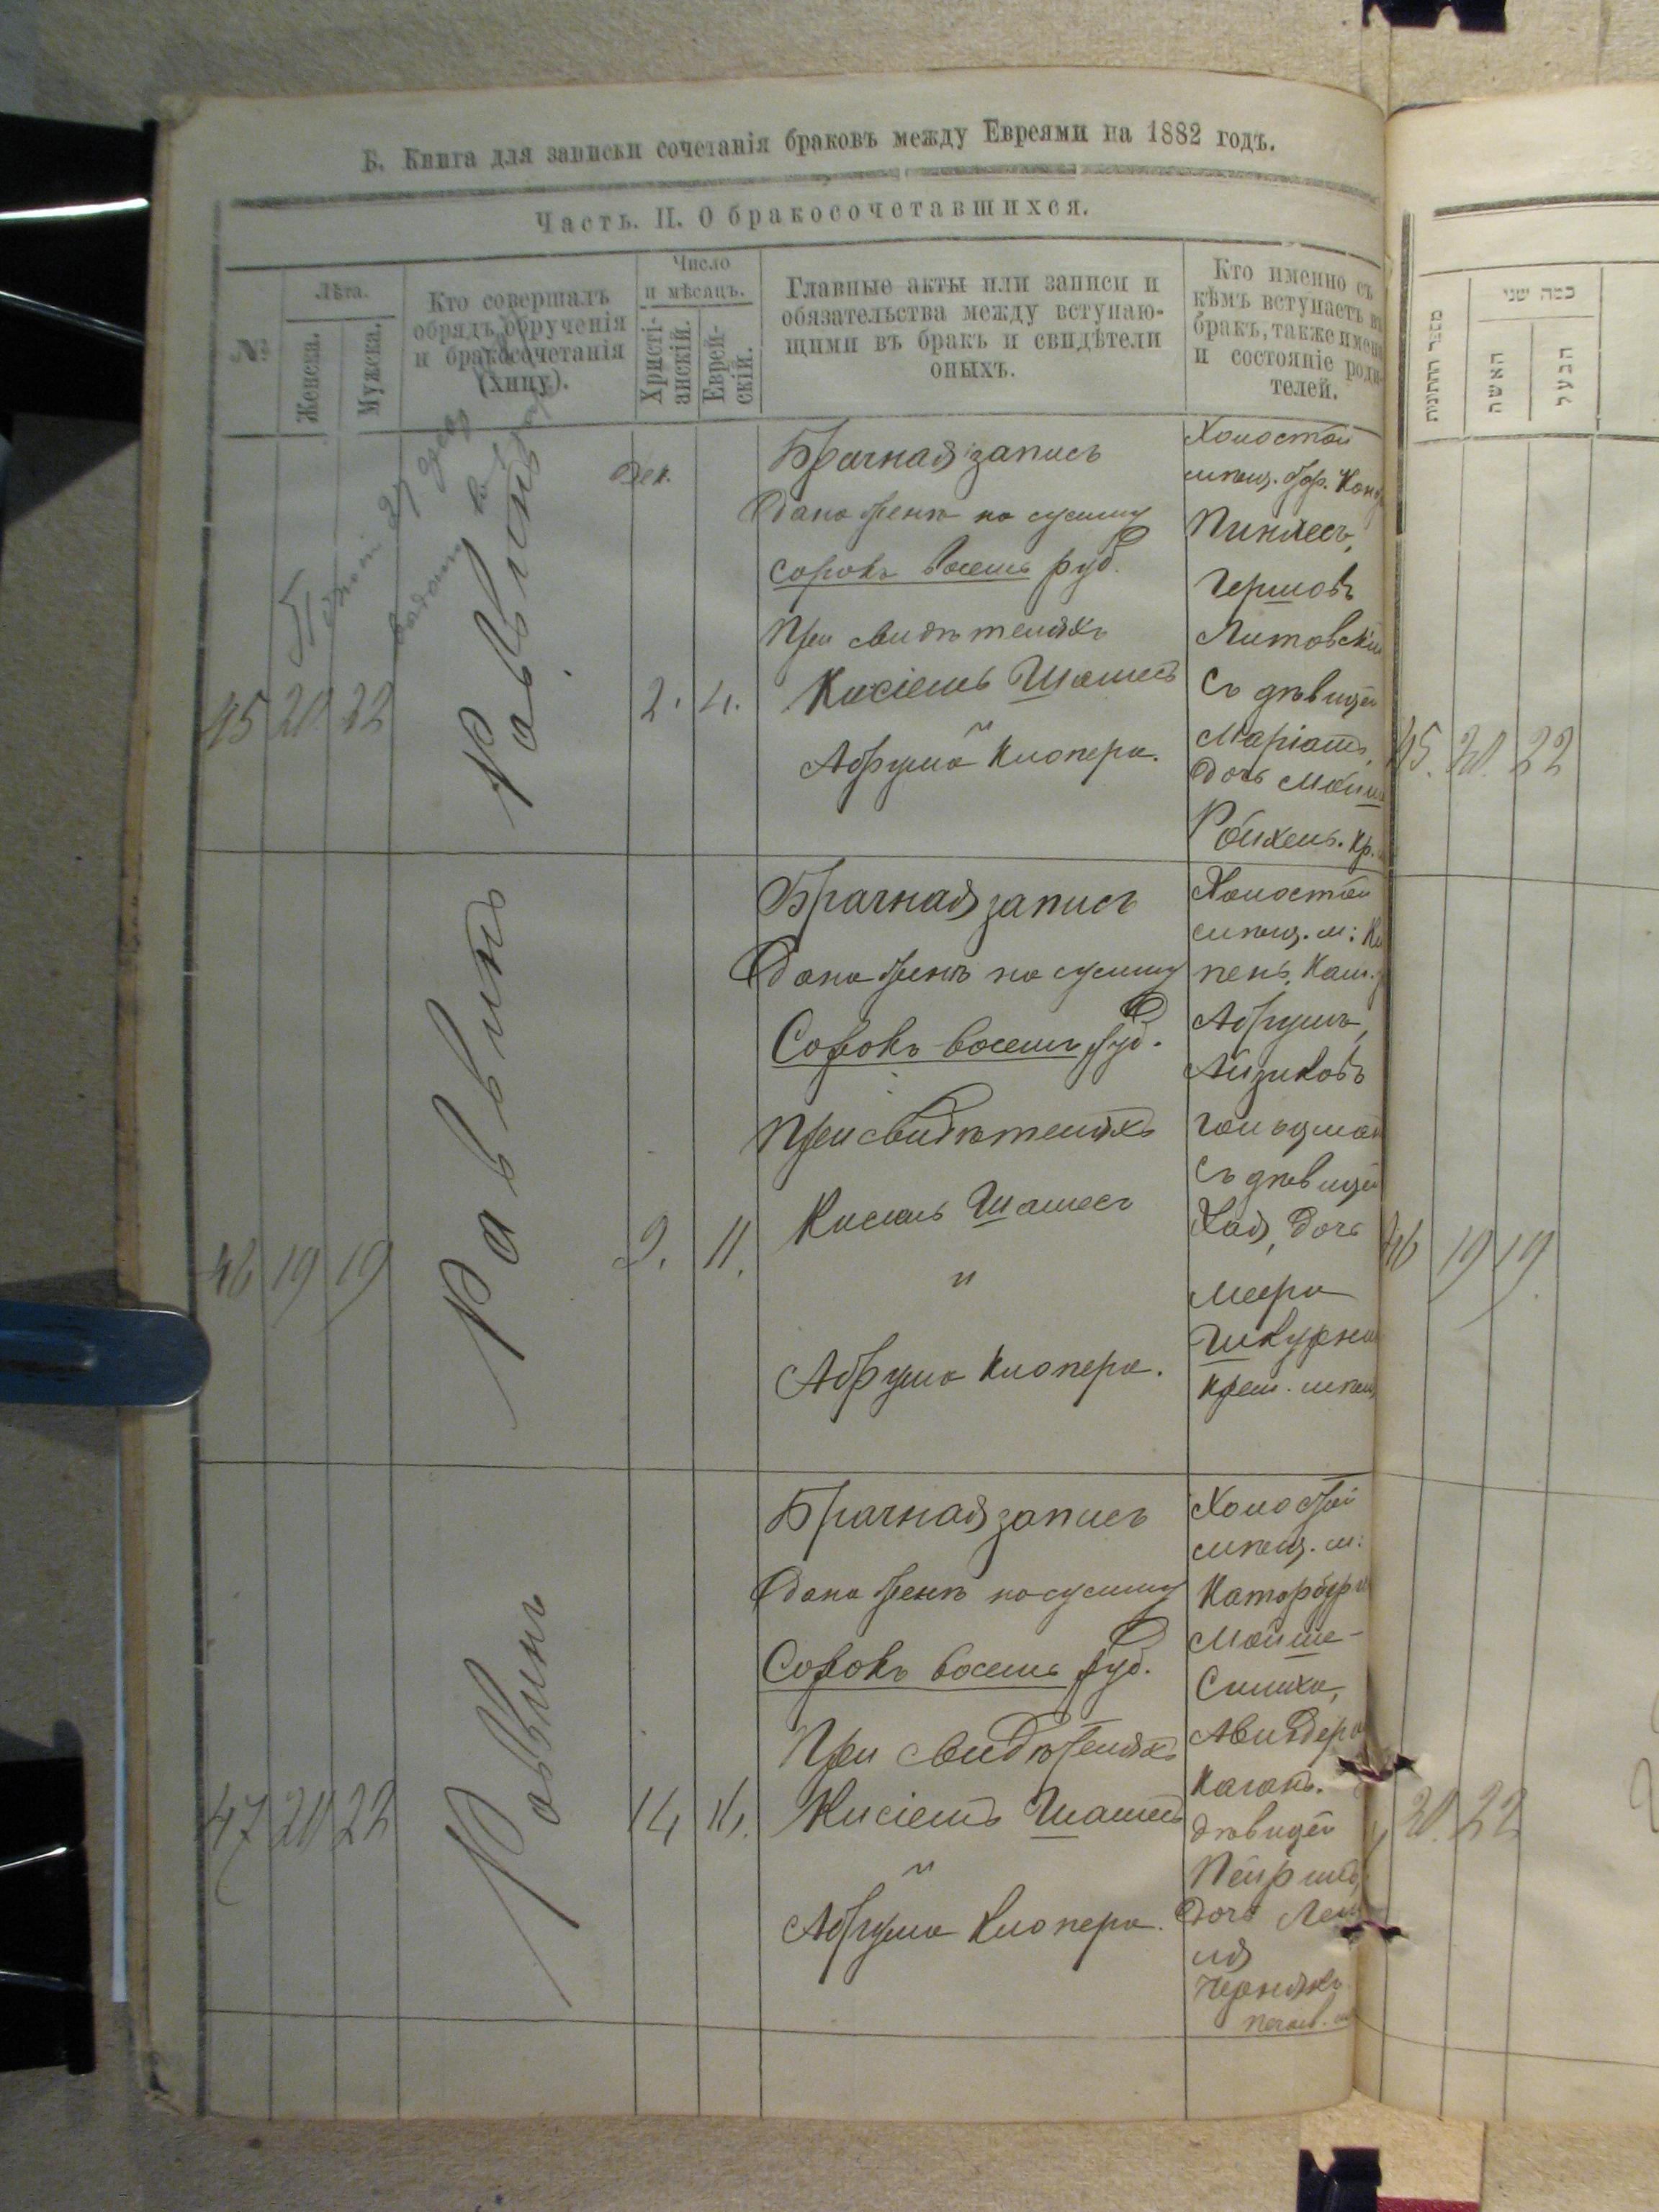 Б. Книга для записки сочетанія браковъ между Евреями на 1882 годъ.
Часть. II. О бракосочетавшихся.
№
Лѣта.
Женска.
Мужска.
Кто совершалъ
обрядъ обрученія
и бракосочетанія
(хипу).
Число
и мѣсяцъ.
Христі-
анскій.
Еврей-
скій.
Главные акты или записи и
обязательства между вступаю-
щими въ бракъ и свидѣтели
оныхъ.
Кто именно съ
кѣмъ вступаетъ въ
бракъ, также имена
и состояніе роди-
телей.
45
20
22
Раввинъ
Дек.
2.
4.
Брачная запись
Дана женѣ на сумму
сорокъ восемь руб.
При свидѣтеляхъ
Кисіель Шамесъ
и
Абрума Клопера.
Холостой
мѣщ.
Пинхесъ,
Гершовъ
Литовскій
съ дѣвицей
Маріамъ,
дочь Мойш
46
19
19
Раввинъ
9.
11.
Брачная запись
Дана женѣ на сумму
Сорокъ восемь руб.
При свидѣтеляхъ
Кисель Шамесъ
и
Абрума Клопера.
Холостой
мѣщ. м:
Абрумъ,
Айзиковъ
Гольдман
съ дѣвицей
Хая, дочь
Меера
Шкурни
Крем. мѣщ
47
20
22
Раввинъ
14
Брачная запись
Дана женѣ на сумму
Сорокъ восемь руб.
При свидѣтеляхъ
Кисіель Шамесъ
и
Абрума Клопера.
Холостой
мѣщ. м:
Мойше-
Симха,
Каганъ.
дѣвицей
дочь
Чернякъ
מספר החתונות
כמה שני
האשה
הבעל
45.
20.
22
46
19
19.
20.
22